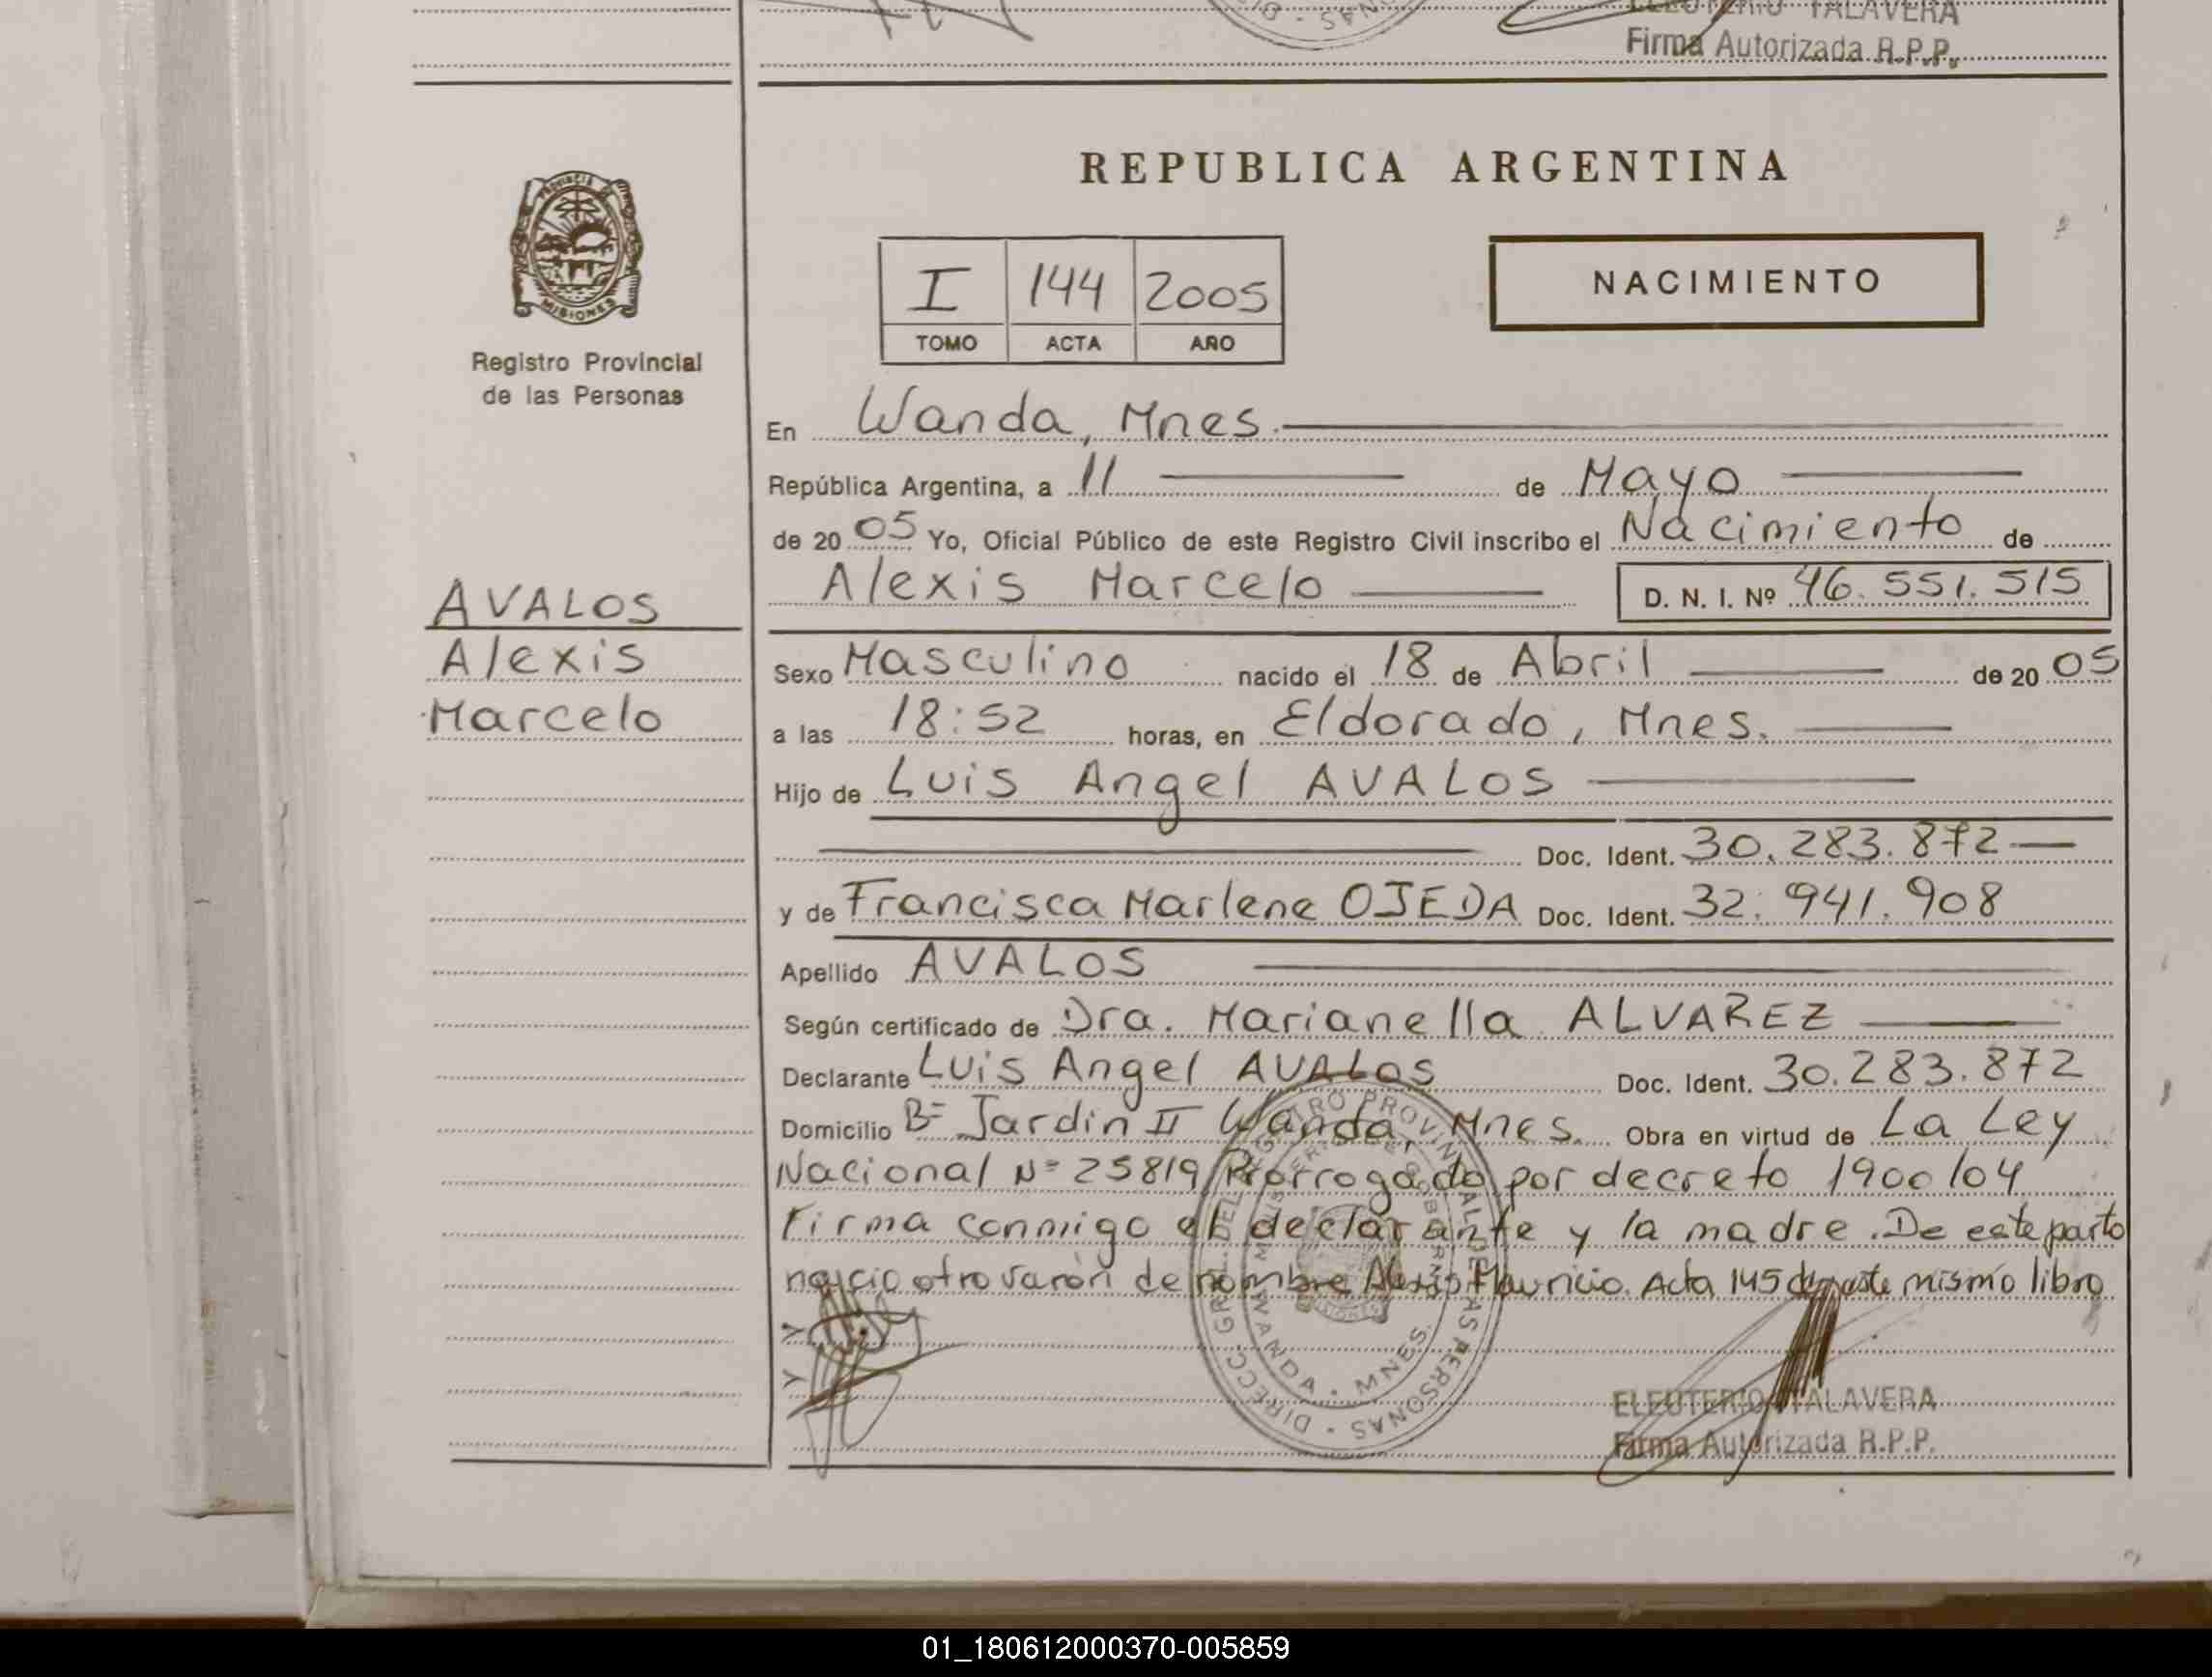 ELEUTERIO TALAVERA
Firma Autorizada R.P.P.
REPUBLICA ARGENTINA
PROVINCIA DE MISIONES
Registro Provincial
de las Personas
I 144 2005
TOMO ACTA AÑO
NACIMIENTO
En Wanda, Mnes.
República Argentina, a 11 de Mayo
de 20 05 Yo, Oficial Público de este Registro Civil inscribo el Nacimiento de
Alexis Marcelo D. N. I. Nº 46.551.515
AVALOS
Alexis
Marcelo
Sexo Masculino nacido el 18 de Abril de 20 05
a las 18:52 horas, en Eldorado, Mnes.
Hijo de Luis Angel AVALOS
Doc. Ident. 30.283.872
y de Francisca Marlene OJEDA Doc. Ident. 32.941.908
Apellido AVALOS
Según certificado de Dra. Marianella ALVAREZ
Declarante Luis Angel AVALOS Doc. Ident. 30.283.872
Domicilio Bº Jardin II Wanda, Mnes. Obra en virtud de La Ley
Nacional Nº 25819 Prorrogado por decreto 1900/04
Firma conmigo el declarante y la madre. De este parto
nacio otro varón de nombre Mauricio. Acta 145 de este mismo libro
DIRECC. GRAL. DEL REGISTRO PROVINCIAL DE LAS PERSONAS
WANDA · MNES.
ELEUTERIO TALAVERA
Firma Autorizada R.P.P.
01_180612000370-005859